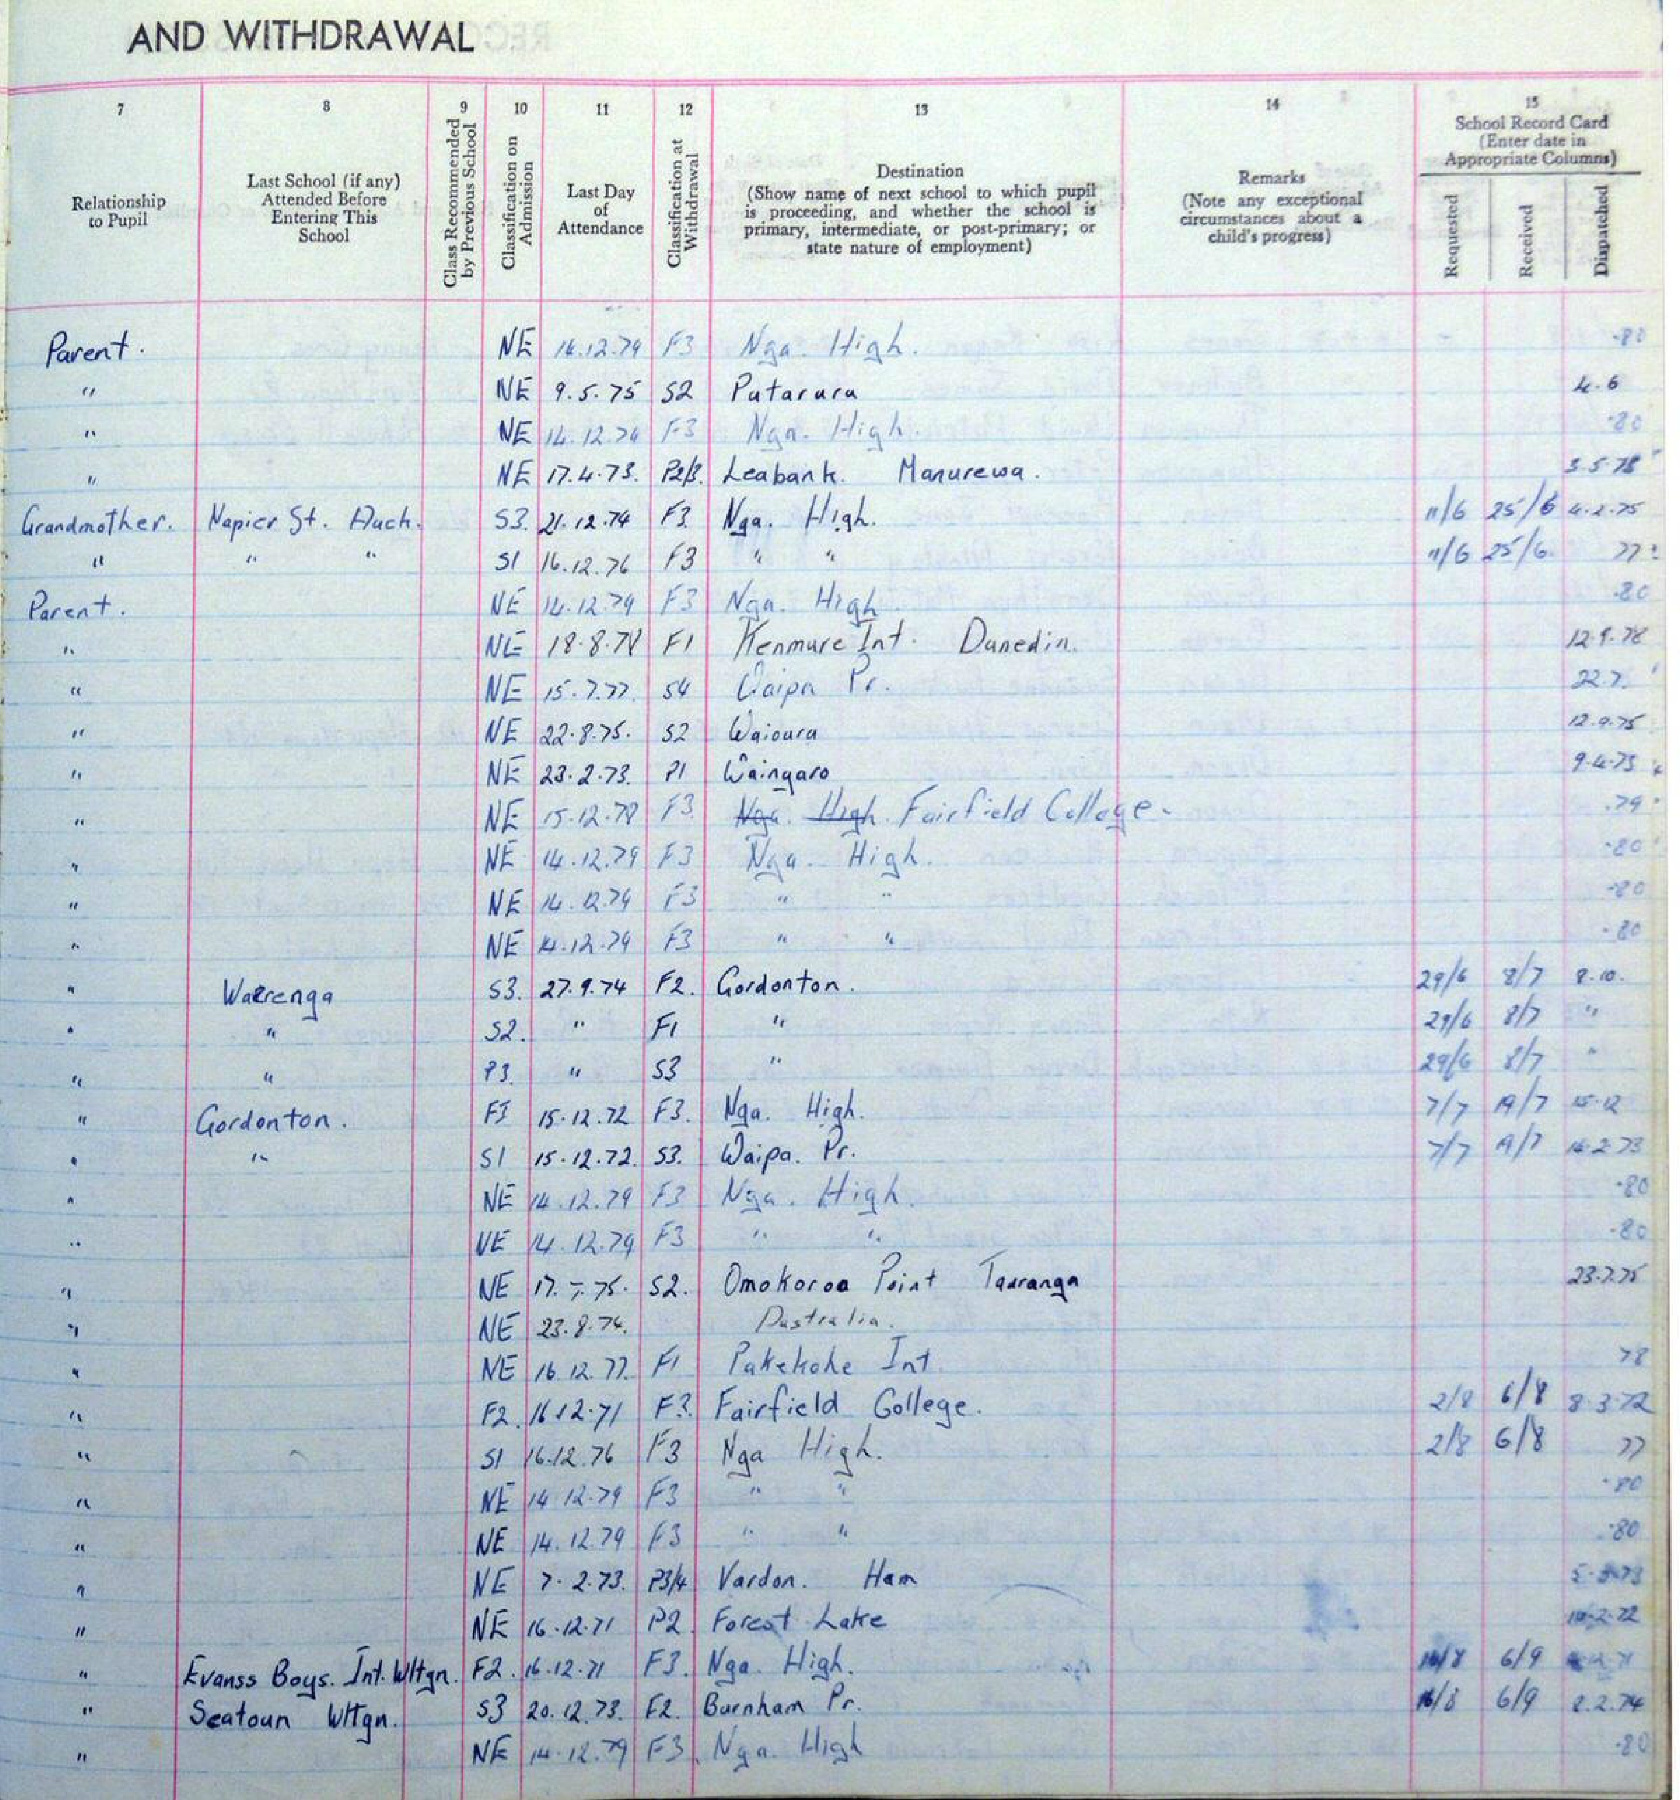 AND WITHDRAWAL
7 8 9 10 11 12 13 14 15
Relationship to Pupil
Last School (if any) Attended Before Entering This School
Class Recommended by Previous School
Classification on Admission
Last Day of Attendance
Classification at Withdrawal
Destination
(Show name of next school to which pupil
is proceeding, and whether the school is
primary, intermediate, or post-primary; or
state nature of employment)
Remarks
(Note any exceptional
circumstances about a
child's progress)
School Record Card
(Enter date in
Appropriate Columns)
Requested Received Dispatched
Parent. NE 14.12.79 F3 Nga. High. -80
" NE 9.5.75 S2 Putaruru 4.6
" NE 14.12.79 F3 Nga. High. -80
" NE 17.4.73. P2/3. Leabank. Manurewa.
Grandmother. Napier St. Auch. S3. 21.12.74 F3 Nga. High. 11/6 25/6 4.2.75
" " " S1 16.12.76 F3 " " 11/6 25/6 77
Parent. NE 14.12.79 F3 Nga. High -80
" NE 18.8.78 F1 Kenmure Int. Dunedin. 12.9.78
" NE 15.7.77 S4 Waipa Pr. 22.7.
" NE 22.8.75. S2 Waioura 12.9.75
" NE 23.2.73. P1 Waingaro 9.4.73
" NE 15.12.78 F3 Nga. High. Fairfield College. .79
" NE 14.12.79 F3 Nga. High. -80
" NE 14.12.79 F3 " " -80
" NE 14.12.79 F3 " " -80
" Waerenga S3. 27.9.74 F2. Gordonton. 29/6 8/7 8.10.
" " S2. " F1 " 29/6 8/7 "
" " P3. " S3 " 29/6 8/7 "
" Gordonton. 15.12.72 F3. Nga. High. 7/7 19/7 15.12
" " S1 15.12.72. S3. Waipa. Pr. 7/7 19/7 16.2.73
" NE 14.12.79 F3 Nga. High. -80
" NE 14.12.79 F3 " " -80
" NE 17.7.75. S2. Omokoroa Point Tauranga 23.7.75
" NE 23.8.74. Australia.
" NE 16.12.77. F1 Pukekohe Int 78
" F2. 16.12.71 F3. Fairfield College. 2/8 6/8 8.3.72
" S1 16.12.76 F3 Nga High. 2/8 6/8 77
" NE 14.12.79 F3 " " -80
" NE 14.12.79 F3 " " -80
" NE 7.2.73. P3/4 Vardon. Ham
" NE 16.12.71 P2 Forest Lake
" Evanss Boys. Int. Wltgn. F2. 16.12.71 F3. Nga. High. 6/9
" Seatoun Wltgn. S3 20.12.73. F2. Burnham Pr. 6/9 2.2.74
" NE 14.12.79 F3. Nga. High -80